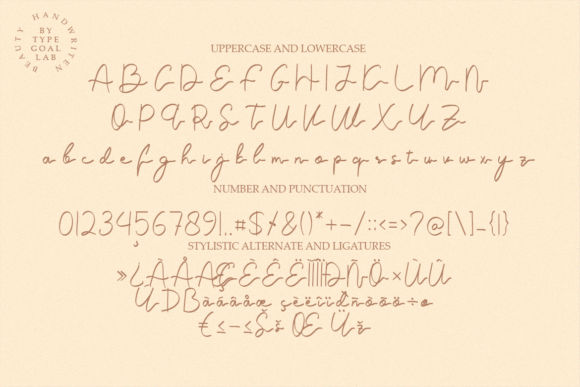 BEAUTY HANDWRITEN
BY
TYPE
GOAL
LAB
UPPERCASE AND LOWERCASE
A B C D E F G H I J K L M N
O P Q R S T U V W X Y Z
a b c d e f g h i j k l m n o p q r s t u v w x y z
NUMBER AND PUNCTUATION
0123456789!,.#$%&()*+-/:;<=>?@[\]_{|}
STYLISTIC ALTERNATE AND LIGATURES